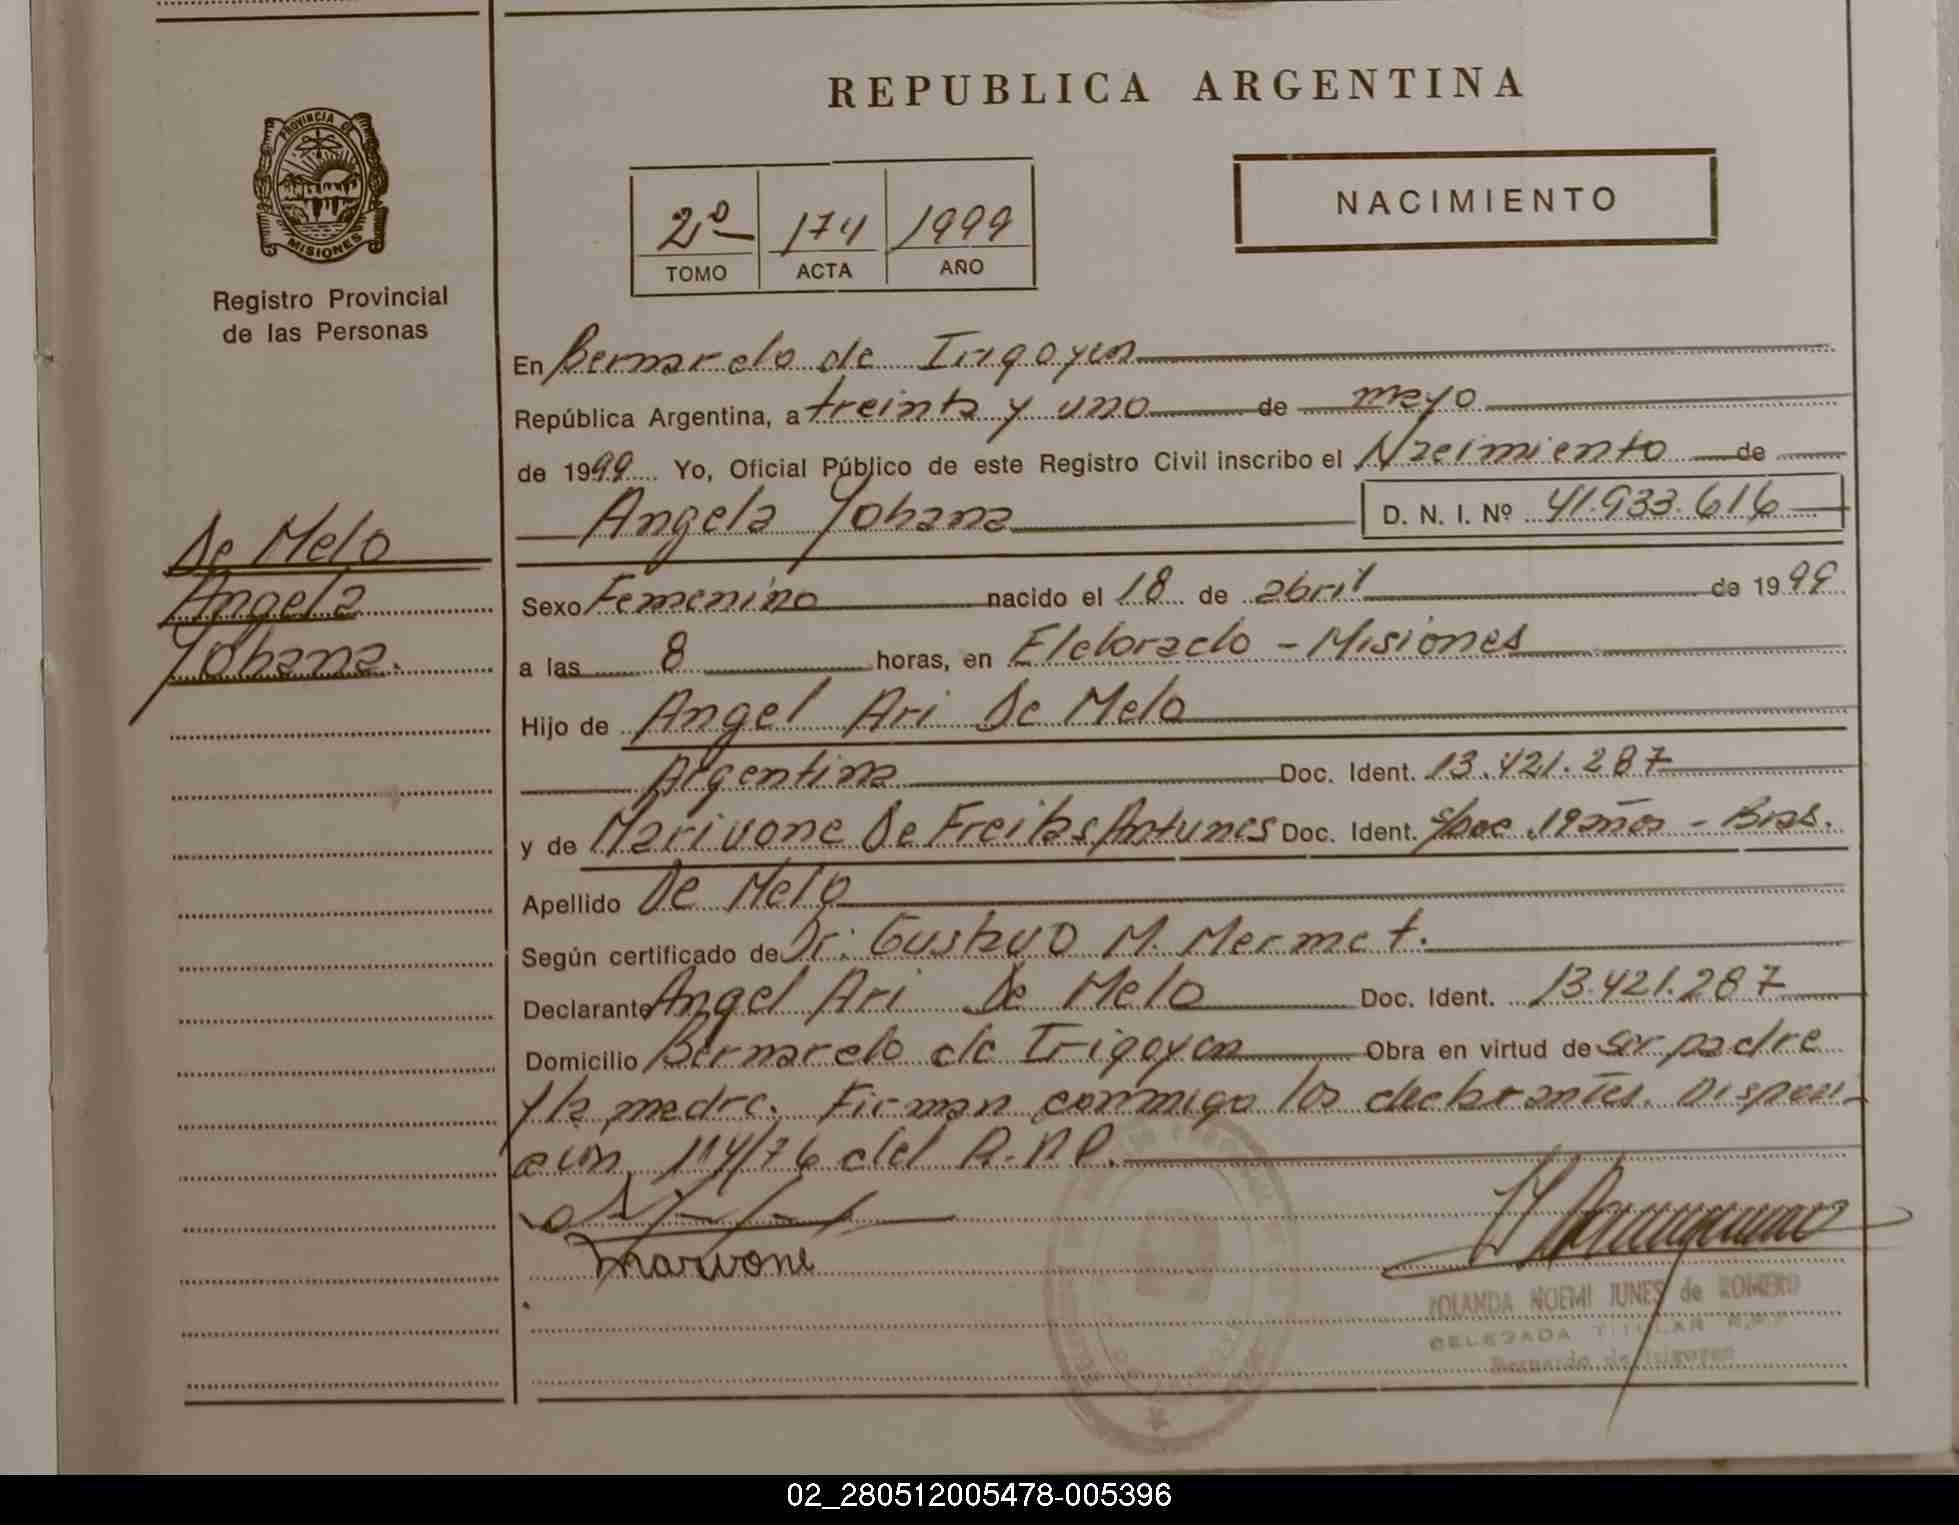 REPUBLICA ARGENTINA
PROVINCIA DE
MISIONES
Registro Provincial
de las Personas
2º 174 1999
TOMO ACTA AÑO
NACIMIENTO
En Bernardo de Irigoyen
República Argentina, a treinta y uno de mayo
de 1999 Yo, Oficial Público de este Registro Civil inscribo el Nacimiento de
Angela Yohana D. N. I. Nº 41.933.616
De Melo
Angela
Yohana.
Sexo Femenino nacido el 18 de abril de 1999
a las 8 horas, en Eldorado - Misiones
Hijo de Angel Ari De Melo
Argentina Doc. Ident. 13.421.287
y de Marivone De Freitas Antunes Doc. Ident. s/doc. 19 años - Bras.
Apellido De Melo
Según certificado de Dr: Gustavo M. Mermet.
Declarante Angel Ari De Melo Doc. Ident. 13.421.287
Domicilio Bernardo de Irigoyen Obra en virtud de ser padre
y la madre. Firman conmigo los declarantes. Disposi-
cion 114/76 del R.N.P.
Marivone
YOLANDA NOEMI JUNES de ROMERO
DELEGADA TITULAR
Bernardo de Irigoyen
02_280512005478-005396